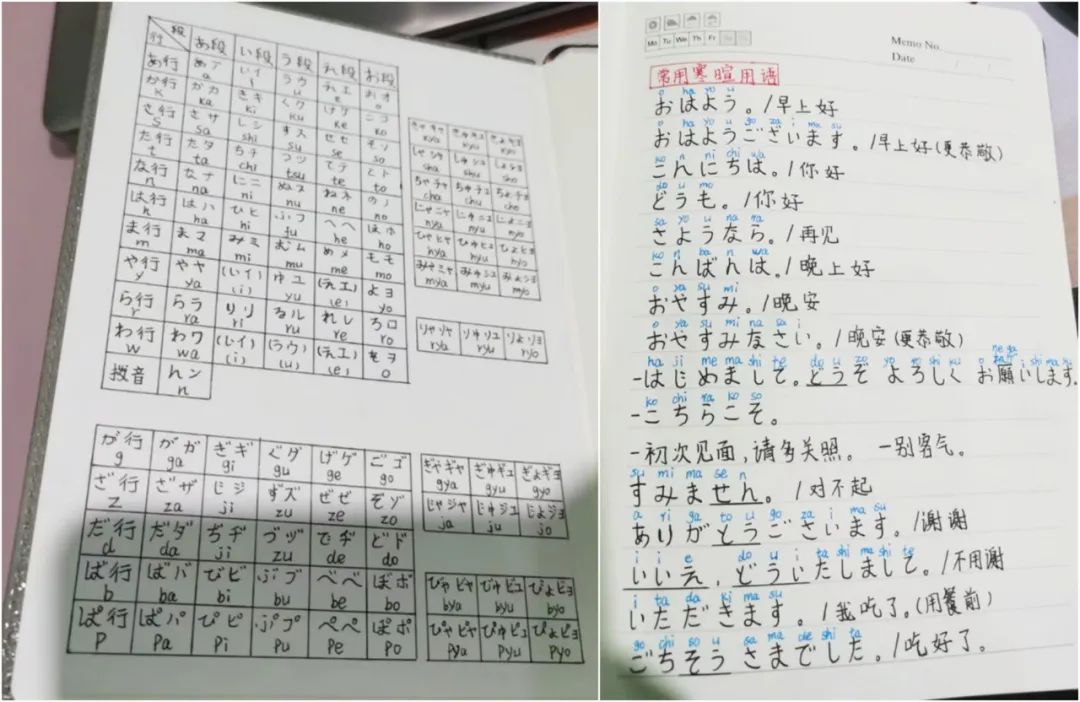 行 段 あ段 い段 う段 え段 お段
あ行 あア いイ うウ えエ おオ
a i u e o
か行 かカ きキ くク けケ こコ
k ka ki ku ke ko
さ行 さサ しシ すス せセ そソ
s sa shi su se so
た行 たタ ちチ つツ てテ とト
t ta chi tsu te to
な行 なナ にニ ぬヌ ねネ のノ
n na ni nu ne no
は行 はハ ひヒ ふフ へヘ ほホ
h ha hi fu he ho
ま行 まマ みミ むム めメ もモ
m ma mi mu me mo
や行 やヤ (いイ) ゆユ (えエ) よヨ
y ya (i) yu (e) yo
ら行 らラ りリ るル れレ ろロ
r ra ri ru re ro
わ行 わワ (いイ) (うウ) (えエ) をヲ
w wa (i) (u) (e) o
拨音 んン
n
きゃキャ きゅキュ きょキョ
kya kyu kyo
しゃシャ しゅシュ しょショ
sha shu sho
ちゃチャ ちゅチュ ちょチョ
cha chu cho
にゃニャ にゅニュ にょニョ
nya nyu nyo
ひゃヒャ ひゅヒュ ひょヒョ
hya hyu hyo
みゃミャ みゅミュ みょミョ
mya myu myo
りゃリャ りゅリュ りょリョ
rya ryu ryo
が行 がガ ぎギ ぐグ げゲ ごゴ
g ga gi gu ge go
ざ行 ざザ じジ ずズ ぜゼ ぞゾ
z za ji zu ze zo
だ行 だダ ぢヂ づヅ でヂ どド
d da ji zu de do
ば行 ばバ びビ ぶブ べベ ぼボ
b ba bi bu be bo
ぱ行 ぱパ ぴピ ぷプ ぺペ ぽポ
p pa pi pu pe po
ぎゃギャ ぎゅギュ ぎょギョ
gya gyu gyo
じゃジャ じゅジュ じょジョ
ja ju jo
びゃビャ びゅビュ びょビョ
bya byu byo
ぴゃピャ ぴゅピュ ぴょピョ
pya pyu pyo
Mo Tu We Th Fr
Memo No.
Date / /
常用寒暄用语
o ha yo u
おはよう。/早上好
o ha yo u go za i ma su
おはようございます。/早上好(更恭敬)
ko n ni chi wa
こんにちは。/你好
do u mo
どうも。/你好
sa yo u na ra
さようなら。/再见
ko n ba n wa
こんばんは。/晚上好
o ya su mi
おやすみ。/晚安
o ya su mi na sa i
おやすみなさい。/晚安(更恭敬)
ha ji me ma shi te do u zo yo ro shi ku o nega i shi ma su
-はじめまして。どうぞ よろしく お願いします.
ko chi ra ko so
-こちらこそ。
-初次见面,请多关照。 -别客气。
su mi ma se n
すみません。/对不起
a ri ga to u go za i ma su
ありがとうございます。/谢谢
i i e do u i ta shi ma shi te
いいえ,どういたしまして。/不用谢
i ta da ki ma su
いただきます。/我吃了。(用餐前)
go chi so u sa ma de shi ta
ごちそうさまでした。/吃好了。